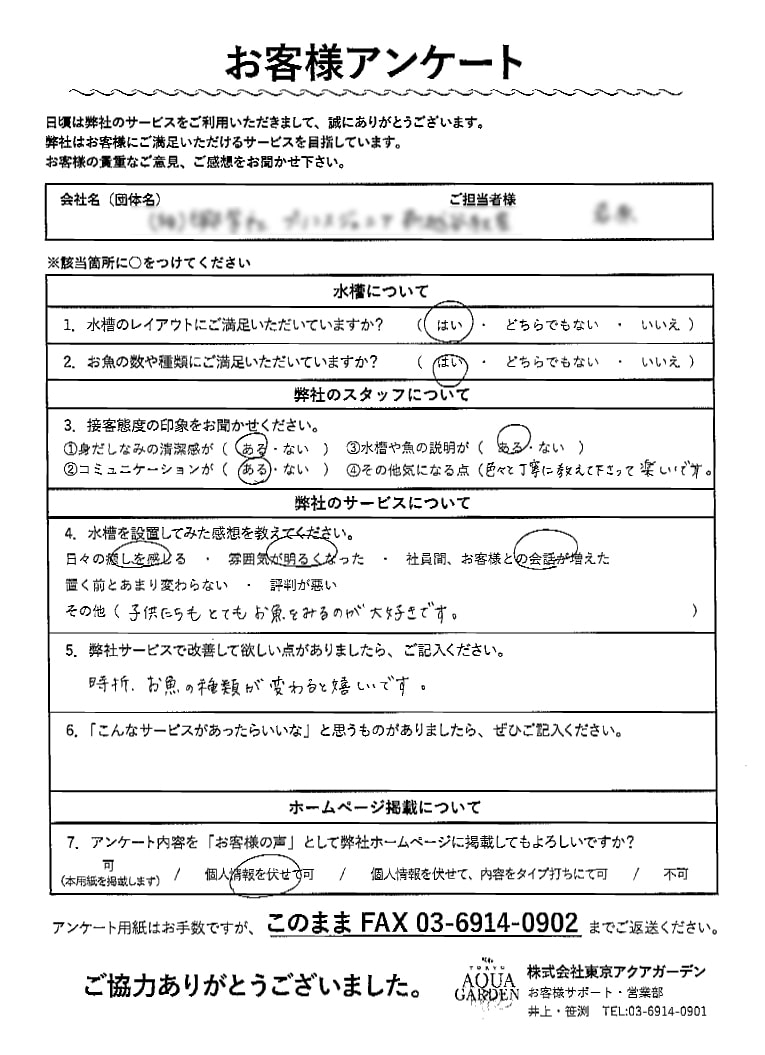 お客様アンケート
日頃は弊社のサービスをご利用いただきまして、誠にありがとうございます。
弊社はお客様にご満足いただけるサービスを目指しています。
お客様の貴重なご意見、ご感想をお聞かせ下さい。
会社名（団体名） ご担当者様
※該当箇所に○をつけてください
水槽について
1．水槽のレイアウトにご満足いただいていますか？ （ はい ・ どちらでもない ・ いいえ ）
2．お魚の数や種類にご満足いただいていますか？ （ はい ・ どちらでもない ・ いいえ ）
弊社のスタッフについて
3．接客態度の印象をお聞かせください。
①身だしなみの清潔感が（ ある・ない ） ③水槽や魚の説明が（ ある・ない ）
②コミュニケーションが（ ある・ない ） ④その他気になる点（色々と丁寧に教えて下さって楽しいです。
弊社のサービスについて
4．水槽を設置してみた感想を教えてください。
日々の癒しを感じる ・ 雰囲気が明るくなった ・ 社員間、お客様との会話が増えた
置く前とあまり変わらない ・ 評判が悪い
その他（ 子供たちもとてもお魚をみるのが大好きです。 ）
5．弊社サービスで改善して欲しい点がありましたら、ご記入ください。
時折、お魚の種類が変わると嬉しいです。
6．「こんなサービスがあったらいいな」と思うものがありましたら、ぜひご記入ください。
ホームページ掲載について
7．アンケート内容を「お客様の声」として弊社ホームページに掲載してもよろしいですか？
可 / 個人情報を伏せて可 / 個人情報を伏せて、内容をタイプ打ちにて可 / 不可
（本用紙を掲載します）
アンケート用紙はお手数ですが、このまま FAX 03-6914-0902 までご返送ください。
ご協力ありがとうございました。
TOKYO
AQUA
GARDEN
株式会社東京アクアガーデン
お客様サポート・営業部
井上・笹渕 TEL:03-6914-0901